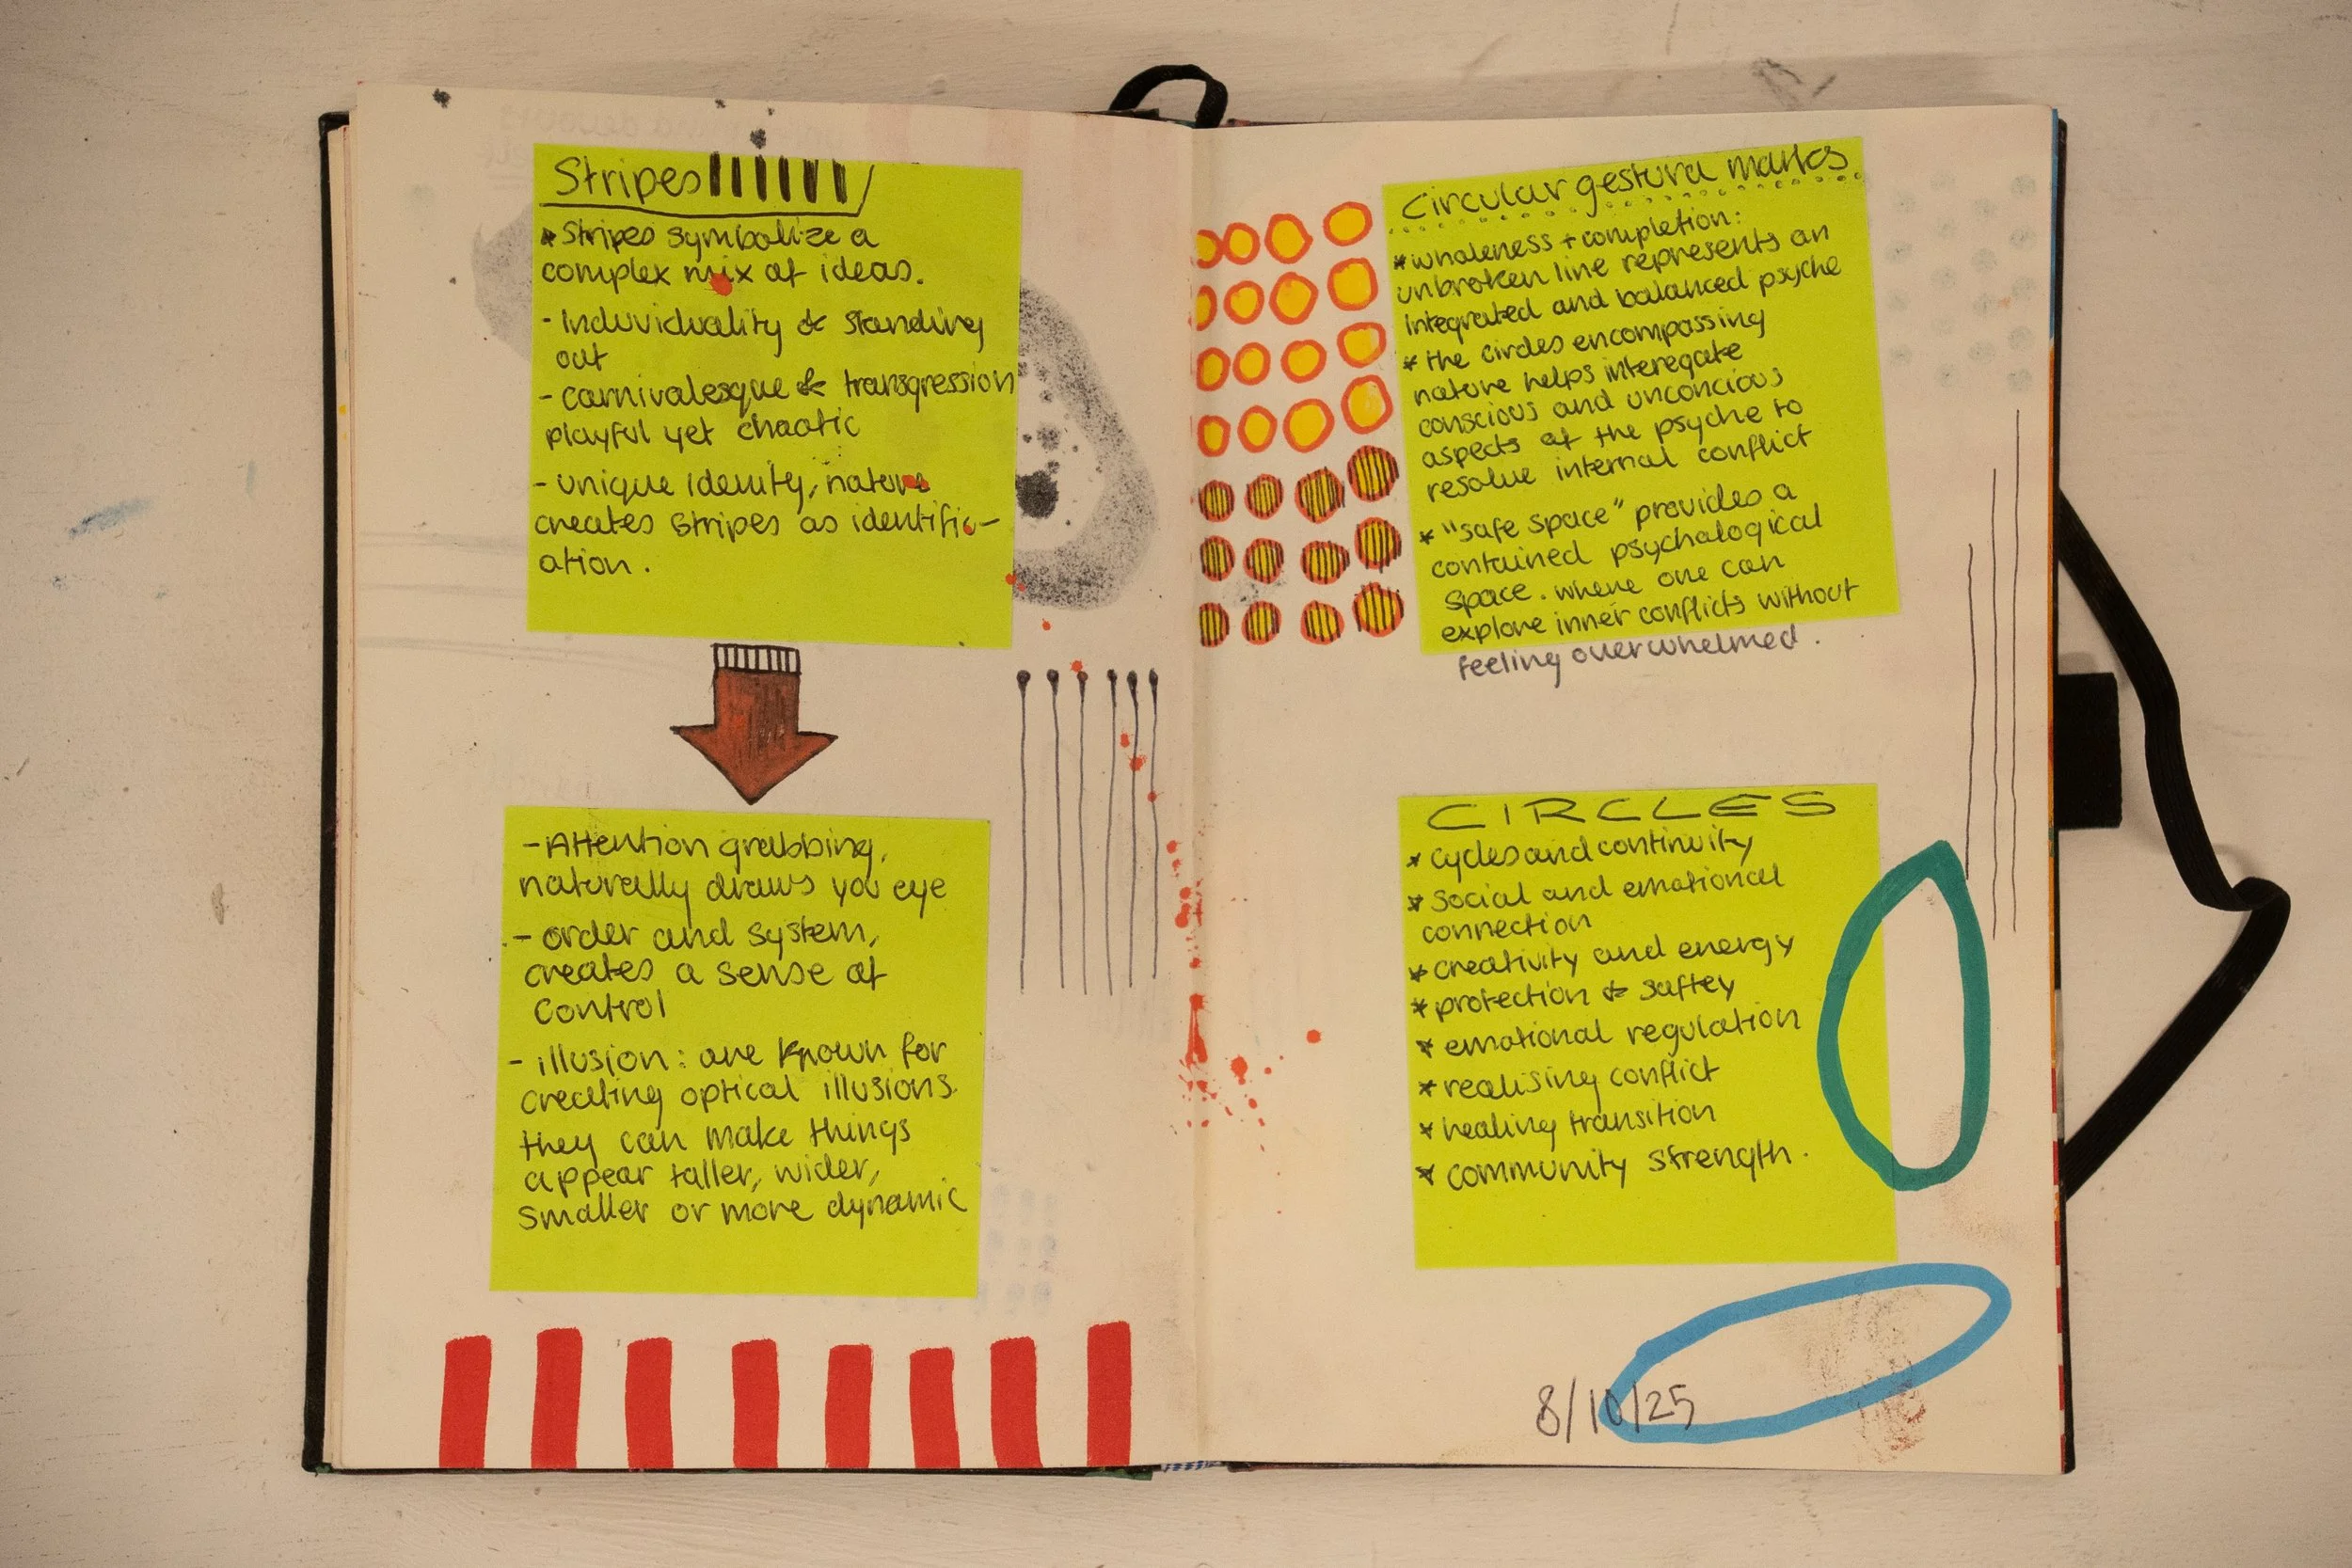 Stripes
* Stripes symbolize a
complex mix of ideas.
- Individuality & standing
out
- carnivalesque & transgression
playful yet chaotic
- unique idenity, nature
creates stripes as identific-
ation.
- Attention grabbing,
naturally draws you eye
- order and system,
creates a sense of
control
- illusion: are known for
creating optical illusions.
they can make things
appear taller, wider,
smaller or more dynamic
Circular gestural marks
* wholeness + completion:
unbroken line represents an
integrated and balanced psyche
* the circles encompassing
nature helps interegate
conscious and unconcious
aspects of the psyche to
resolve internal conflict
* "safe space" provides a
contained psychological
space. where one can
explore inner conflicts without
feeling overwhelmed.
CIRCLES
* cycles and continuity
* social and emotional
connection
* creativity and energy
* protection & saftey
* emotional regulation
* realising conflict
* healing transition
* community strength.
8/10/25